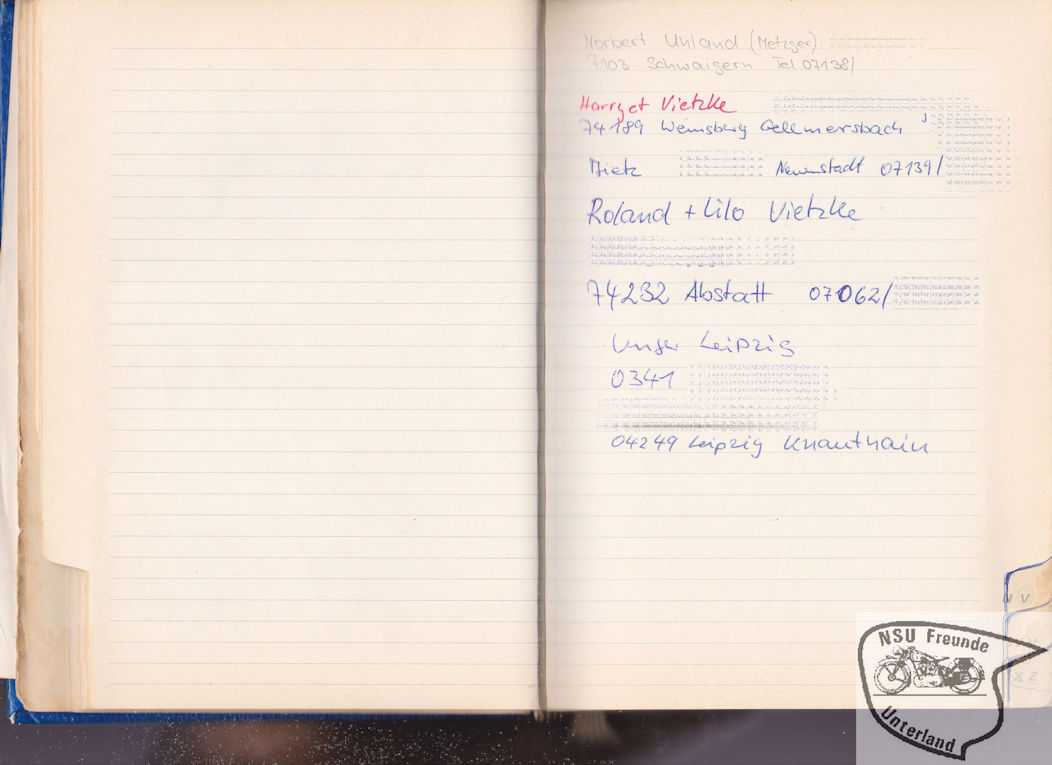 Norbert Unland (Metzger)
7103 Schwaigern Tel 07138/
Harryet Vietzke
74189 Weinsberg Gellmersbach
Neuenstadt 07139/
Roland + Lilo Vietzke
74232 Abstatt 07062/
Unger Leipzig
0341
04249 Leipzig Knauthain
U V
X Z
NSU Freunde
Unterland